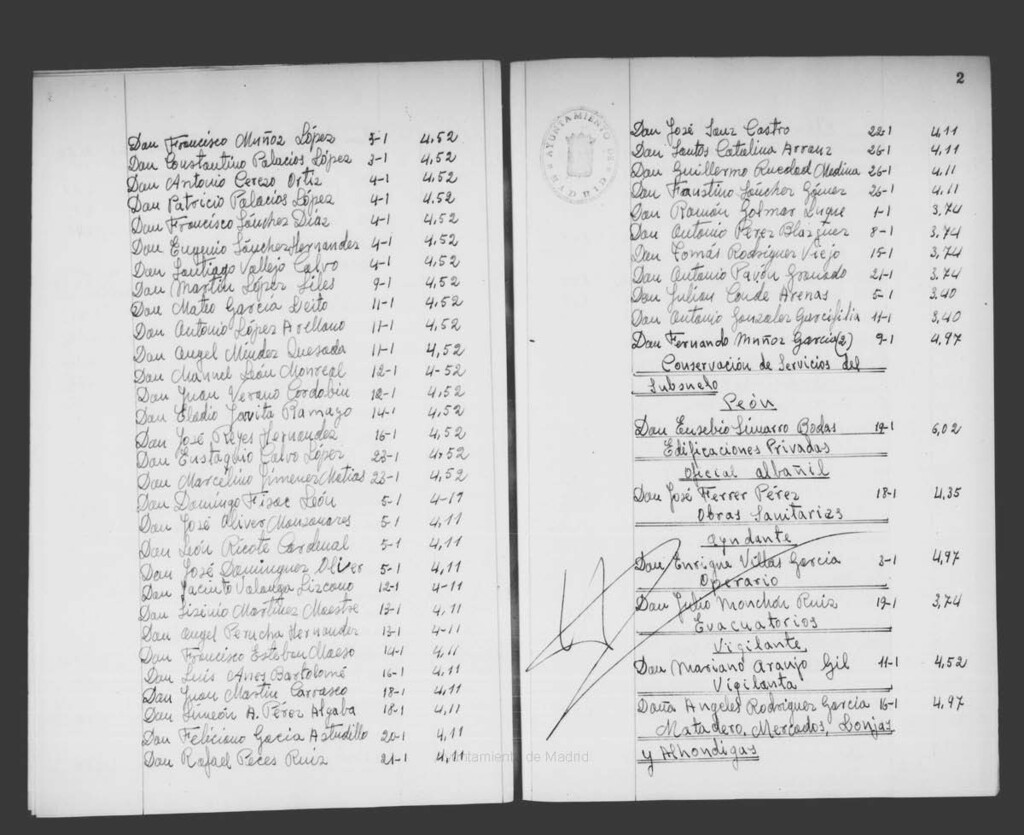 Don Francisco Muñoz López 3-1 4,52
Don Constantino Palacios López 3-1 4,52
Don Antonio Cerezo Ortiz 4-1 4,52
Don Patricio Palacios López 4-1 4,52
Don Francisco Sánchez Díaz 4-1 4,52
Don Eugenio Sánchez Hernandez 4-1 4,52
Don Santiago Vallejo Calvo 4-1 4,52
Don Martín López Siles 9-1 4,52
Don Mateo García Deito 11-1 4,52
Don Antonio López Arellano 11-1 4,52
Don Angel Méndez Quesada 11-1 4,52
Don Manuel León Monreal 12-1 4-52
Don Juan Verano Cordobin 12-1 4,52
Don Eladio Ramayo 14-1 4,52
Don José Reyes Hernandez 16-1 4,52
Don Eustaquio Calvo López 23-1 4,52
Don Marcelino Jimenez Matias 23-1 4,52
Don Domingo Fisac León 5-1 4-11
Don José Oliver Manzanares 5-1 4,11
Don León Ricote Cardenal 5-1 4,11
Don José Dominguez Oliver 5-1 4,11
Don Jacinto Lizcano 12-1 4-11
Don Martínez Maestre 13-1 4,11
Don Angel Perucha Hernandez 13-1 4-11
Don Francisco Esteban Maeso 14-1 4,11
Don Luis Bartolomé 16-1 4,11
Don Juan Martín Carrasco 18-1 4,11
Don Simeón A. Pérez Algaba 18-1 4,11
Don Feliciano Gacia Astudillo 20-1 4,11
Don Rafael Peces Ruiz 21-1 4,11
2
AYUNTAMIENTO DE MADRID
Don José Sanz Castro 22-1 4,11
Don Santos Catalina Arranz 26-1 4,11
Don Guillermo Medina 26-1 4,11
Don Faustino Sánchez Gómez 26-1 4,11
Don Ramón Golmar Luque 1-1 3,74
Don Antonio Pérez Blazquez 8-1 3,74
Don Tomás Rodriguez Viejo 15-1 3,74
Don Antonio Pavón Granado 21-1 3.74
Don Julian Conde Arenas 5-1 3,40
Don Antonio Gonzalez Garcifilia 11-1 3,40
Don Fernando Muñoz García (2) 9-1 4,97
Conservación de Servicios del
Subsuelo
Peón
Don Eusebio Simarro Bodas 19-1 6,02
Edificaciones Privadas
Oficial albañil
Don José Ferrer Pérez 18-1 4,35
Obras Sanitarias
Ayudante
Don Enrique Villas García 3-1 4,97
Operario
Don Julio Monchón Ruiz 19-1 3,74
Evacuatorios
Vigilante
Don Mariano Araujo Gil 11-1 4,52
Vigilanta
Doña Angeles Rodriguez García 16-1 4,97
Matadero, Mercados, Lonjas
y Alhondigas
Ayuntamiento de Madrid